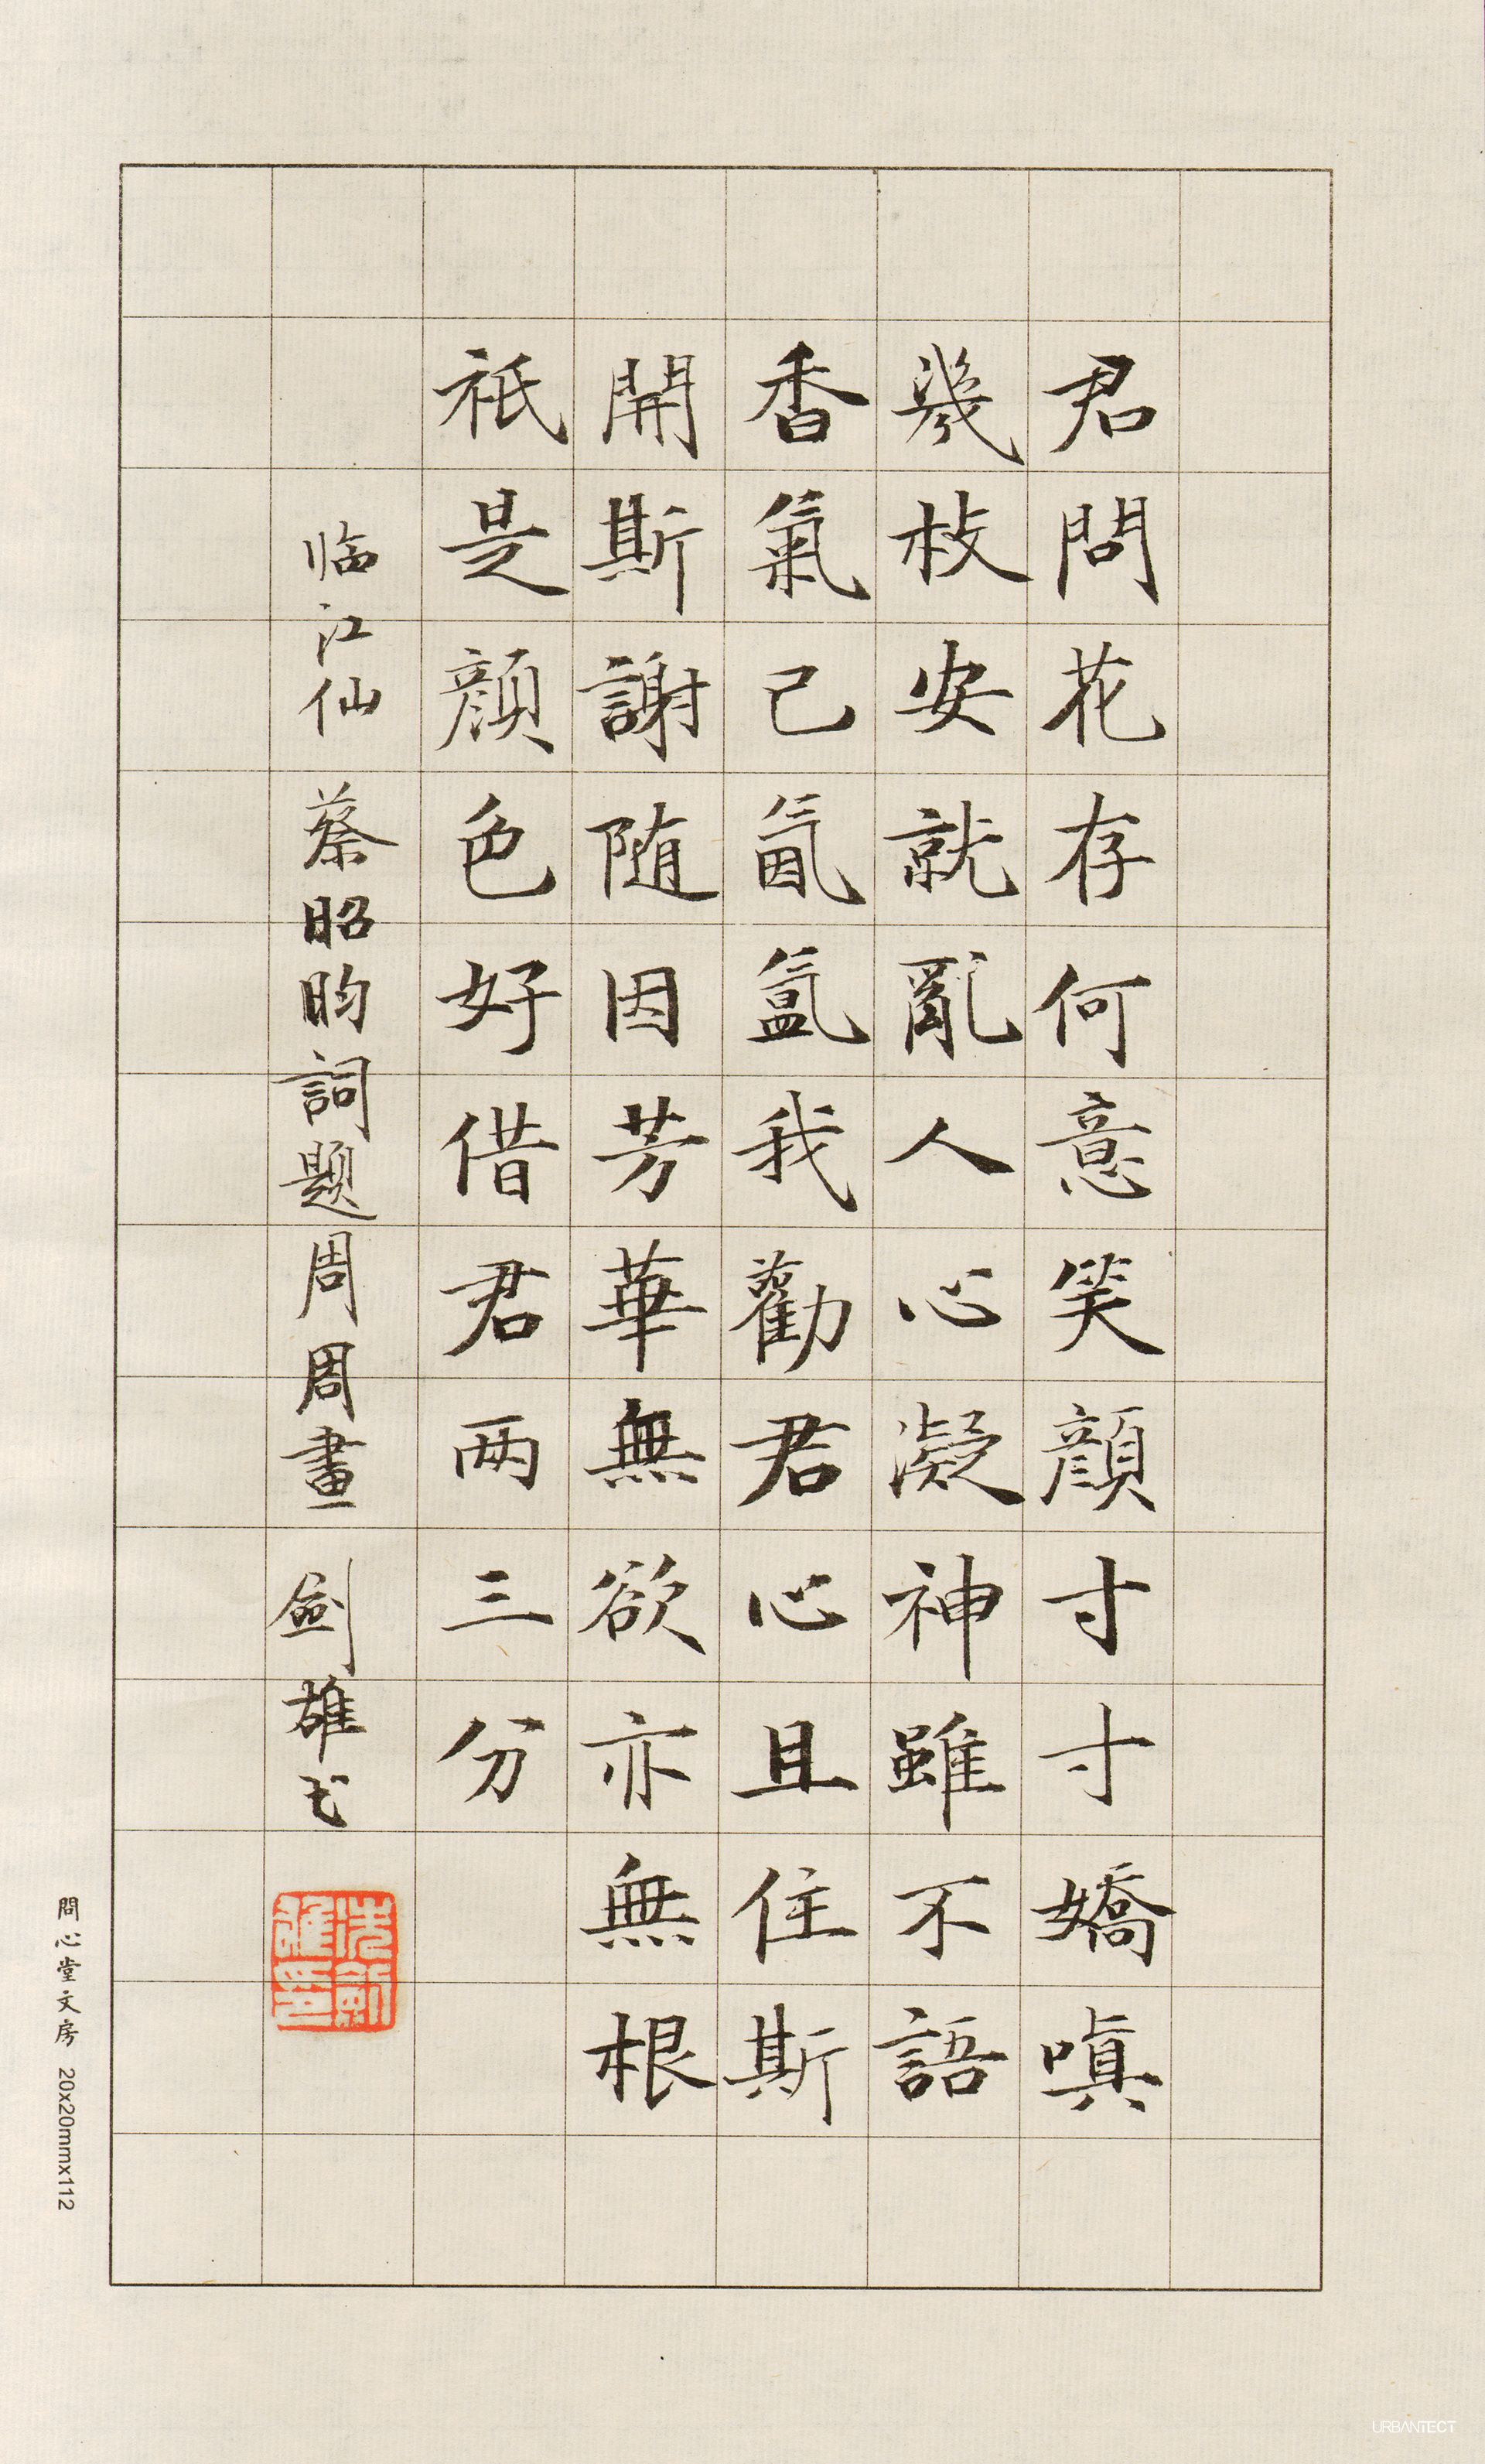 君問花存何意笑顔寸寸嬌嗔
幾枝安就亂人心凝神雖不語
香氣已氤氳我勸君心且住斯
開斯謝随因芳華無欲亦無根
祇是顔色好借君两三分
临江仙 蔡昭昀詞題周周畫 劍雄书
冼劍雄印
問心堂文房 20x20mmx112
URBANTECT